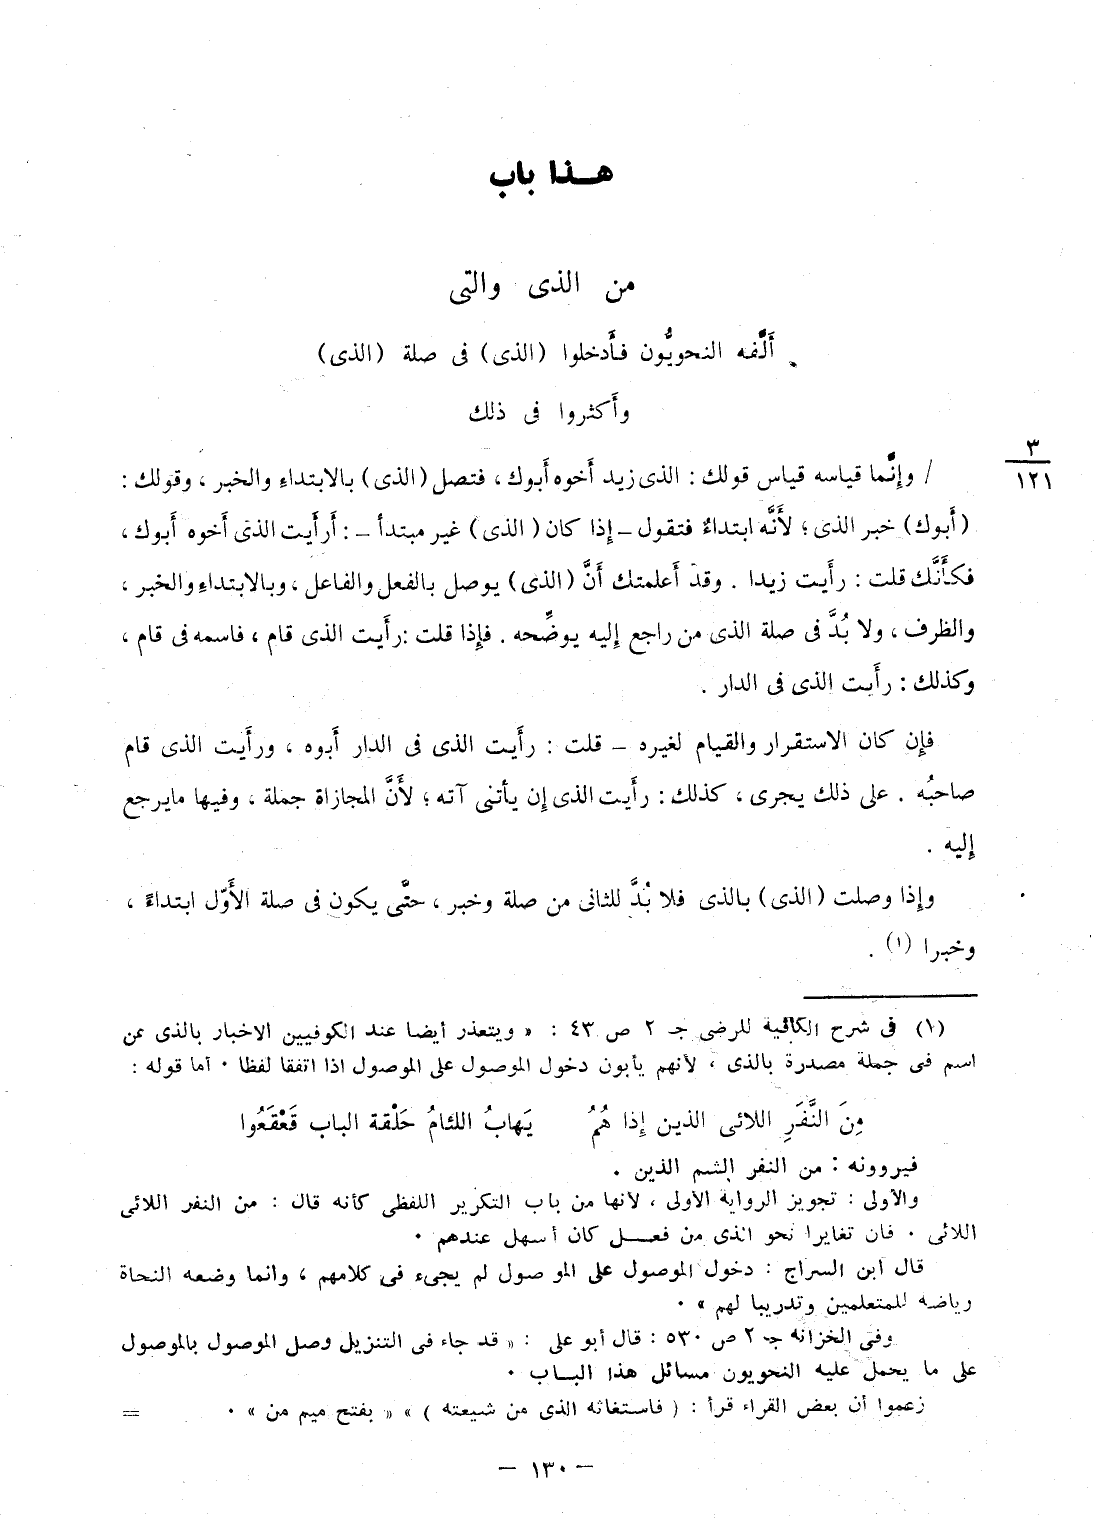 هــذا باب
من الذى والتى
أَلَّفه النحويُّون فأَدخلوا (الذى) فى صلة (الذى)
وأَكثروا فى ذلك
٣
١٢١
/ وإِنَّما قياسه قياس قولك : الذى زيد أَخوه أَبوك ، فتصل (الذى) بالابتداءِ والخبر ، وقولك :
(أَبوك) خبر الذى ؛ لأَنَّه ابتداءٌ فتقول ــ إِذا كان (الذى) غير مبتدأ ــ : أَرأَيت الذى أَخوه أَبوك ،
فكأَنَّك قلت : رأَيت زيدا . وقد أَعلمتك أَنَّ (الذى) يوصل بالفعل والفاعل ، وبالابتداءِ والخبر ،
والظرف ، ولا بُدَّ فى صلة الذى من راجع إِليه يوضِّحه . فإِذا قلت : رأَيت الذى قام ، فاسمه فى قام ،
وكذلك : رأَيت الذى فى الدار .
فإِن كان الاستقرار والقيام لغيره ــ قلت : رأَيت الذى فى الدار أَبوه ، ورأَيت الذى قام
صاحبُه . على ذلك يجرى ، كذلك : رأَيت الذى إِن يأْتنى آته ؛ لأَنَّ المجازاة جملة ، وفيها مايرجع
إِليه .
وإِذا وصلت (الذى) بالذى فلا بُدَّ للثانى من صلة وخبر ، حتَّى يكون فى صلة الأَوّل ابتداءً ،
وخبرا (١) .
(١) فى شرح الكافية للرضى جـ ٢ ص ٤٣ : « ويتعذر أيضا عند الكوفيين الاخبار بالذى عن
اسم فى جملة مصدرة بالذى ، لأنهم يأبون دخول الموصول على الموصول اذا اتفقا لفظا · أما قوله :
مِنَ النَّفَرِ اللائى الذين إِذا هُمُ يَهابُ اللئامُ حَلْقة الباب قَعْقَعُوا
فيروونه : من النفر الشم الذين ·
والأولى : تجويز الرواية الأولى ، لأنها من باب التكرير اللفظى كأنه قال : من النفر اللائى
اللائى · فان تغايرا نحو الذى من فعــل كان أسهل عندهم ·
قال ابن السراج : دخول الموصول على الموصول لم يجىء فى كلامهم ، وانما وضعه النحاة
رياضة للمتعلمين وتدريبا لهم » ·
وفى الخزانة جـ ٢ ص ٥٣٠ : قال أبو على : « قد جاء فى التنزيل وصل الموصول بالموصول
على ما يحمل عليه النحويون مسائل هذا البــاب ·
زعموا أن بعض القراء قرأ : ( فاستغاثه الذى من شيعته ) » « بفتح ميم من » · =
– ١٣٠ –